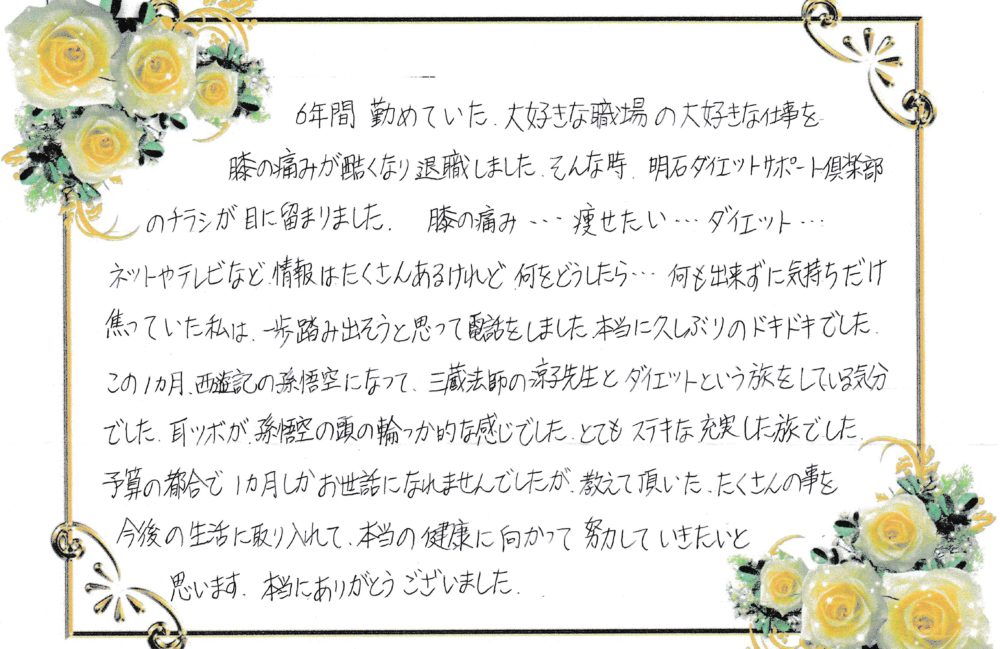 6年間 勤めていた、大好きな職場の大好きな仕事を
膝の痛みが酷くなり退職しました、そんな時、明石ダイエットサポート倶楽部
のチラシが目に留まりました。 膝の痛み… 痩せたい… ダイエット…
ネットやテレビなど、情報はたくさんあるけれど 何をどうしたら… 何も出来ずに気持ちだけ
焦っていた私は、一歩踏み出そうと思って電話をしました、本当に久しぶりのドキドキでした、
この1カ月、西遊記の孫悟空になって、三蔵法師の涼子先生とダイエットという旅をしている気分
でした、耳ツボが、孫悟空の頭の輪っか的な感じでした、とてもステキな充実した旅でした、
予算の都合で1カ月しかお世話になれませんでしたが、教えて頂いた、たくさんの事を
今後の生活に取り入れて、本当の健康に向かって努力していきたいと
思います、本当にありがとうございました、